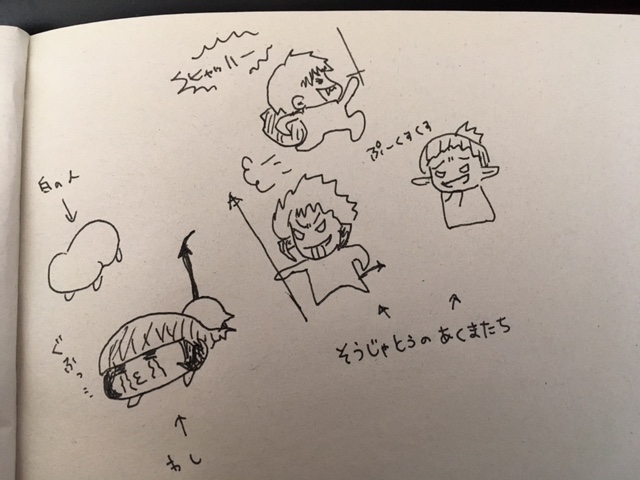 ヒャッハー
ぷーくすくす
白の人
そうじゃとろのあくまたち
ぐふっ…
わし